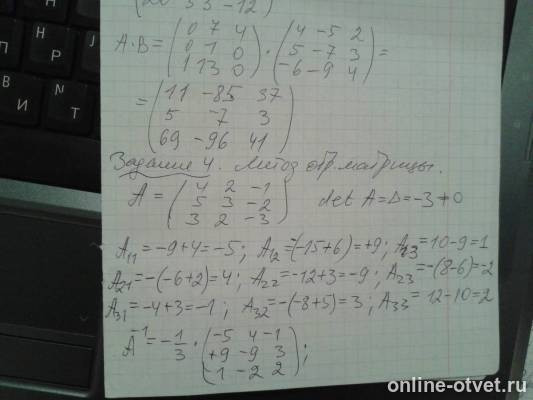 (20 33 -12)
A·B = (0 7 4) · (4 -5 2) =
(0 1 0) (5 -7 3)
(1 13 0) (-6 -9 4)
= (11 -85 37)
(5 -7 3)
(69 -96 41)
Задание 4. Метод обр. матрицы.
A = (4 2 -1) det A = Δ = -3 ≠ 0
(5 3 -2)
(3 2 -3)
A₁₁ = -9+4 = -5; A₁₂ = -(-15+6) = +9; A₁₃ = 10-9 = 1
A₂₁ = -(-6+2) = 4; A₂₂ = -12+3 = -9; A₂₃ = -(8-6) = -2
A₃₁ = -4+3 = -1; A₃₂ = -(-8+5) = 3; A₃₃ = 12-10 = 2
A⁻¹ = -1/3 · (-5 4 -1)
(+9 -9 3) ;
(1 -2 2)
online-otvet.ru